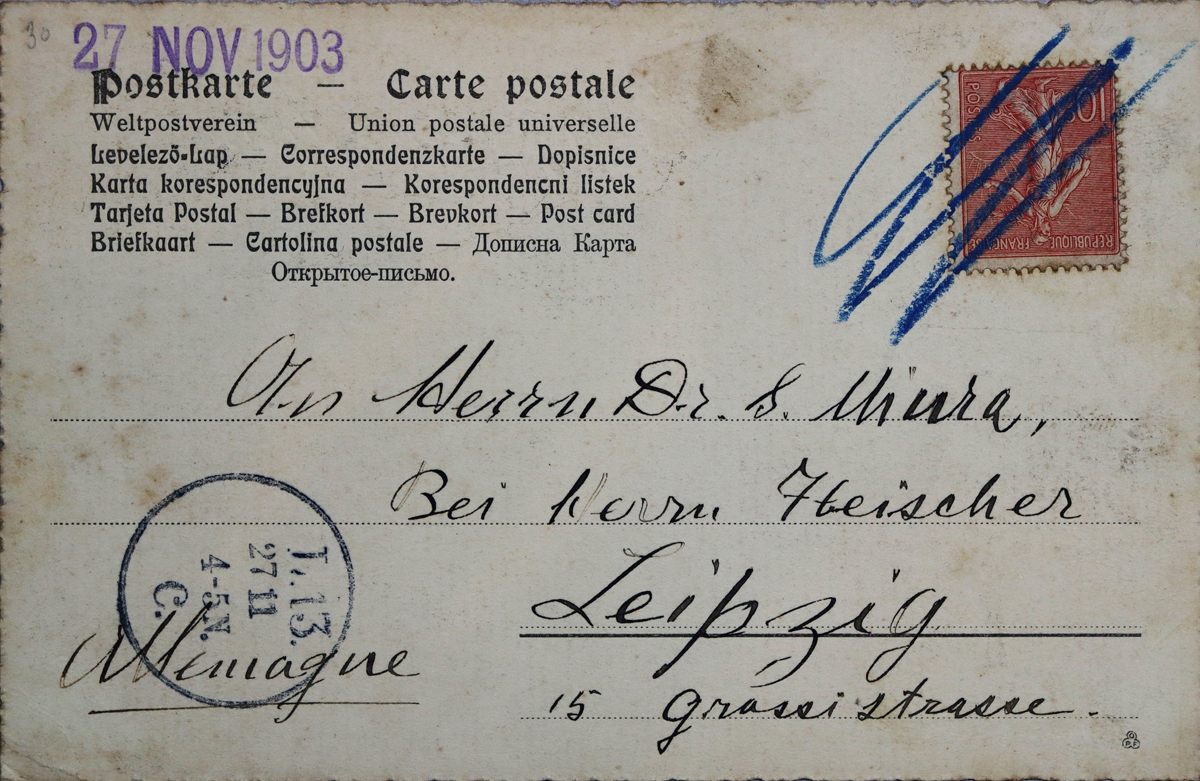 30
27 NOV 1903
Postkarte — Carte postale
Weltpostverein — Union postale universelle
Levelező-Lap — Correspondenzkarte — Dopisnice
Karta korespondencyjna — Korespondencni listek
Tarjeta Postal — Brefkort — Brevkort — Post card
Briefkaart — Cartolina postale — Дописна Карта
Открытое-письмо.
10
POSTES
REPUBLIQUE FRANÇAISE
An Herrn Dr. S. Miura,
Bei Herrn Fleischer
Leipzig
15 Grassistrasse.
Allemagne
L.13.
27 11
4-5N.
C.